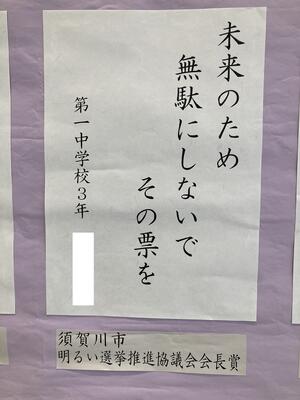 未来のため
無駄にしないで
その票を
第一中学校3年
須賀川市
明るい選挙推進協議会会長賞